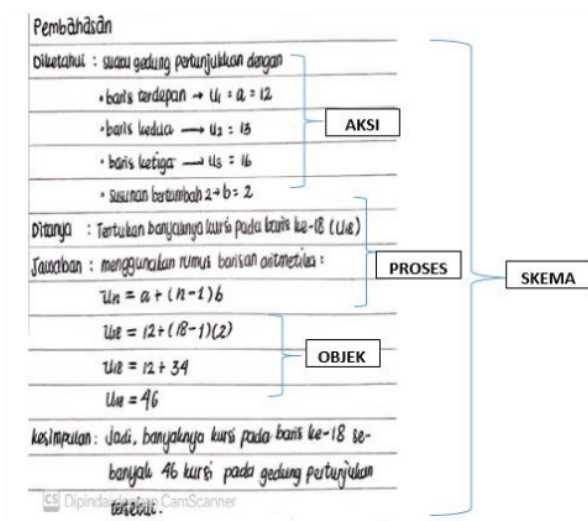 Pembahasan
Diketahui : suatu gedung pertunjukkan dengan
• baris terdepan → U₁ = a = 12
AKSI
• baris kedua → U₂ = 13
• baris ketiga → U₃ = 16
• susunan bertambah 2 → b = 2
Ditanya : Tentukan banyaknya kursi pada baris ke-18 (U₁₈)
Jawaban : menggunakan rumus barisan aritmetika :
PROSES
SKEMA
Un = a + (n-1)b
U₁₈ = 12 + (18-1)(2)
OBJEK
U₁₈ = 12 + 34
U₁₈ = 46
kesimpulan : Jadi, banyaknya kursi pada baris ke-18 se-
banyak 46 kursi pada gedung pertunjukan
tersebut.
CS Dipindai dengan CamScanner